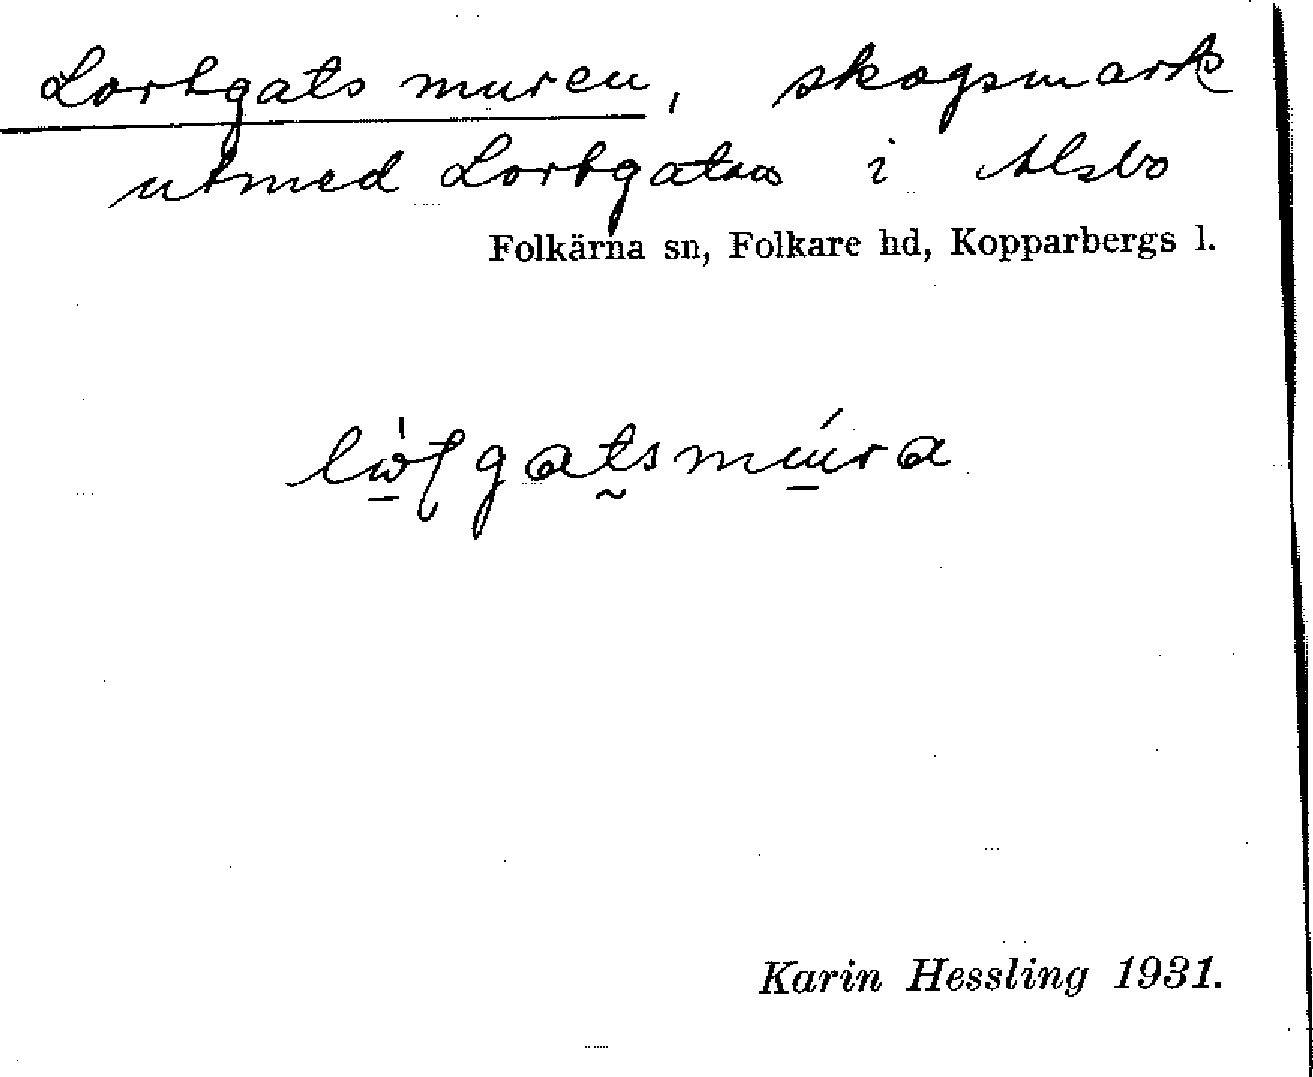 Lortgats muren, skogsmark
utmed Lortgatan i Alsbo
Folkärna sn, Folkare hd, Kopparbergs l.
Karin Hessling 1931.